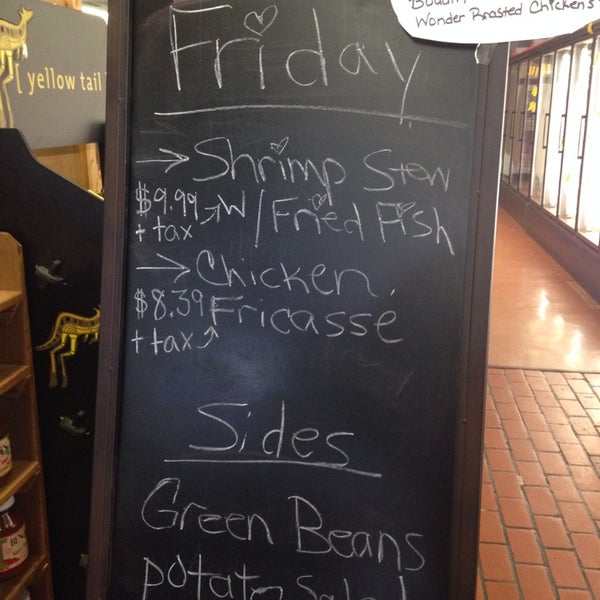 Boudin
Wonder Roasted Chickens
[ yellow tail
Friday
→ Shrimp Stew
$9.99 → w/ Fried Fish
+ tax
→ Chicken
$8.39 Fricasse
+ tax
Sides
Green Beans
potato Salad